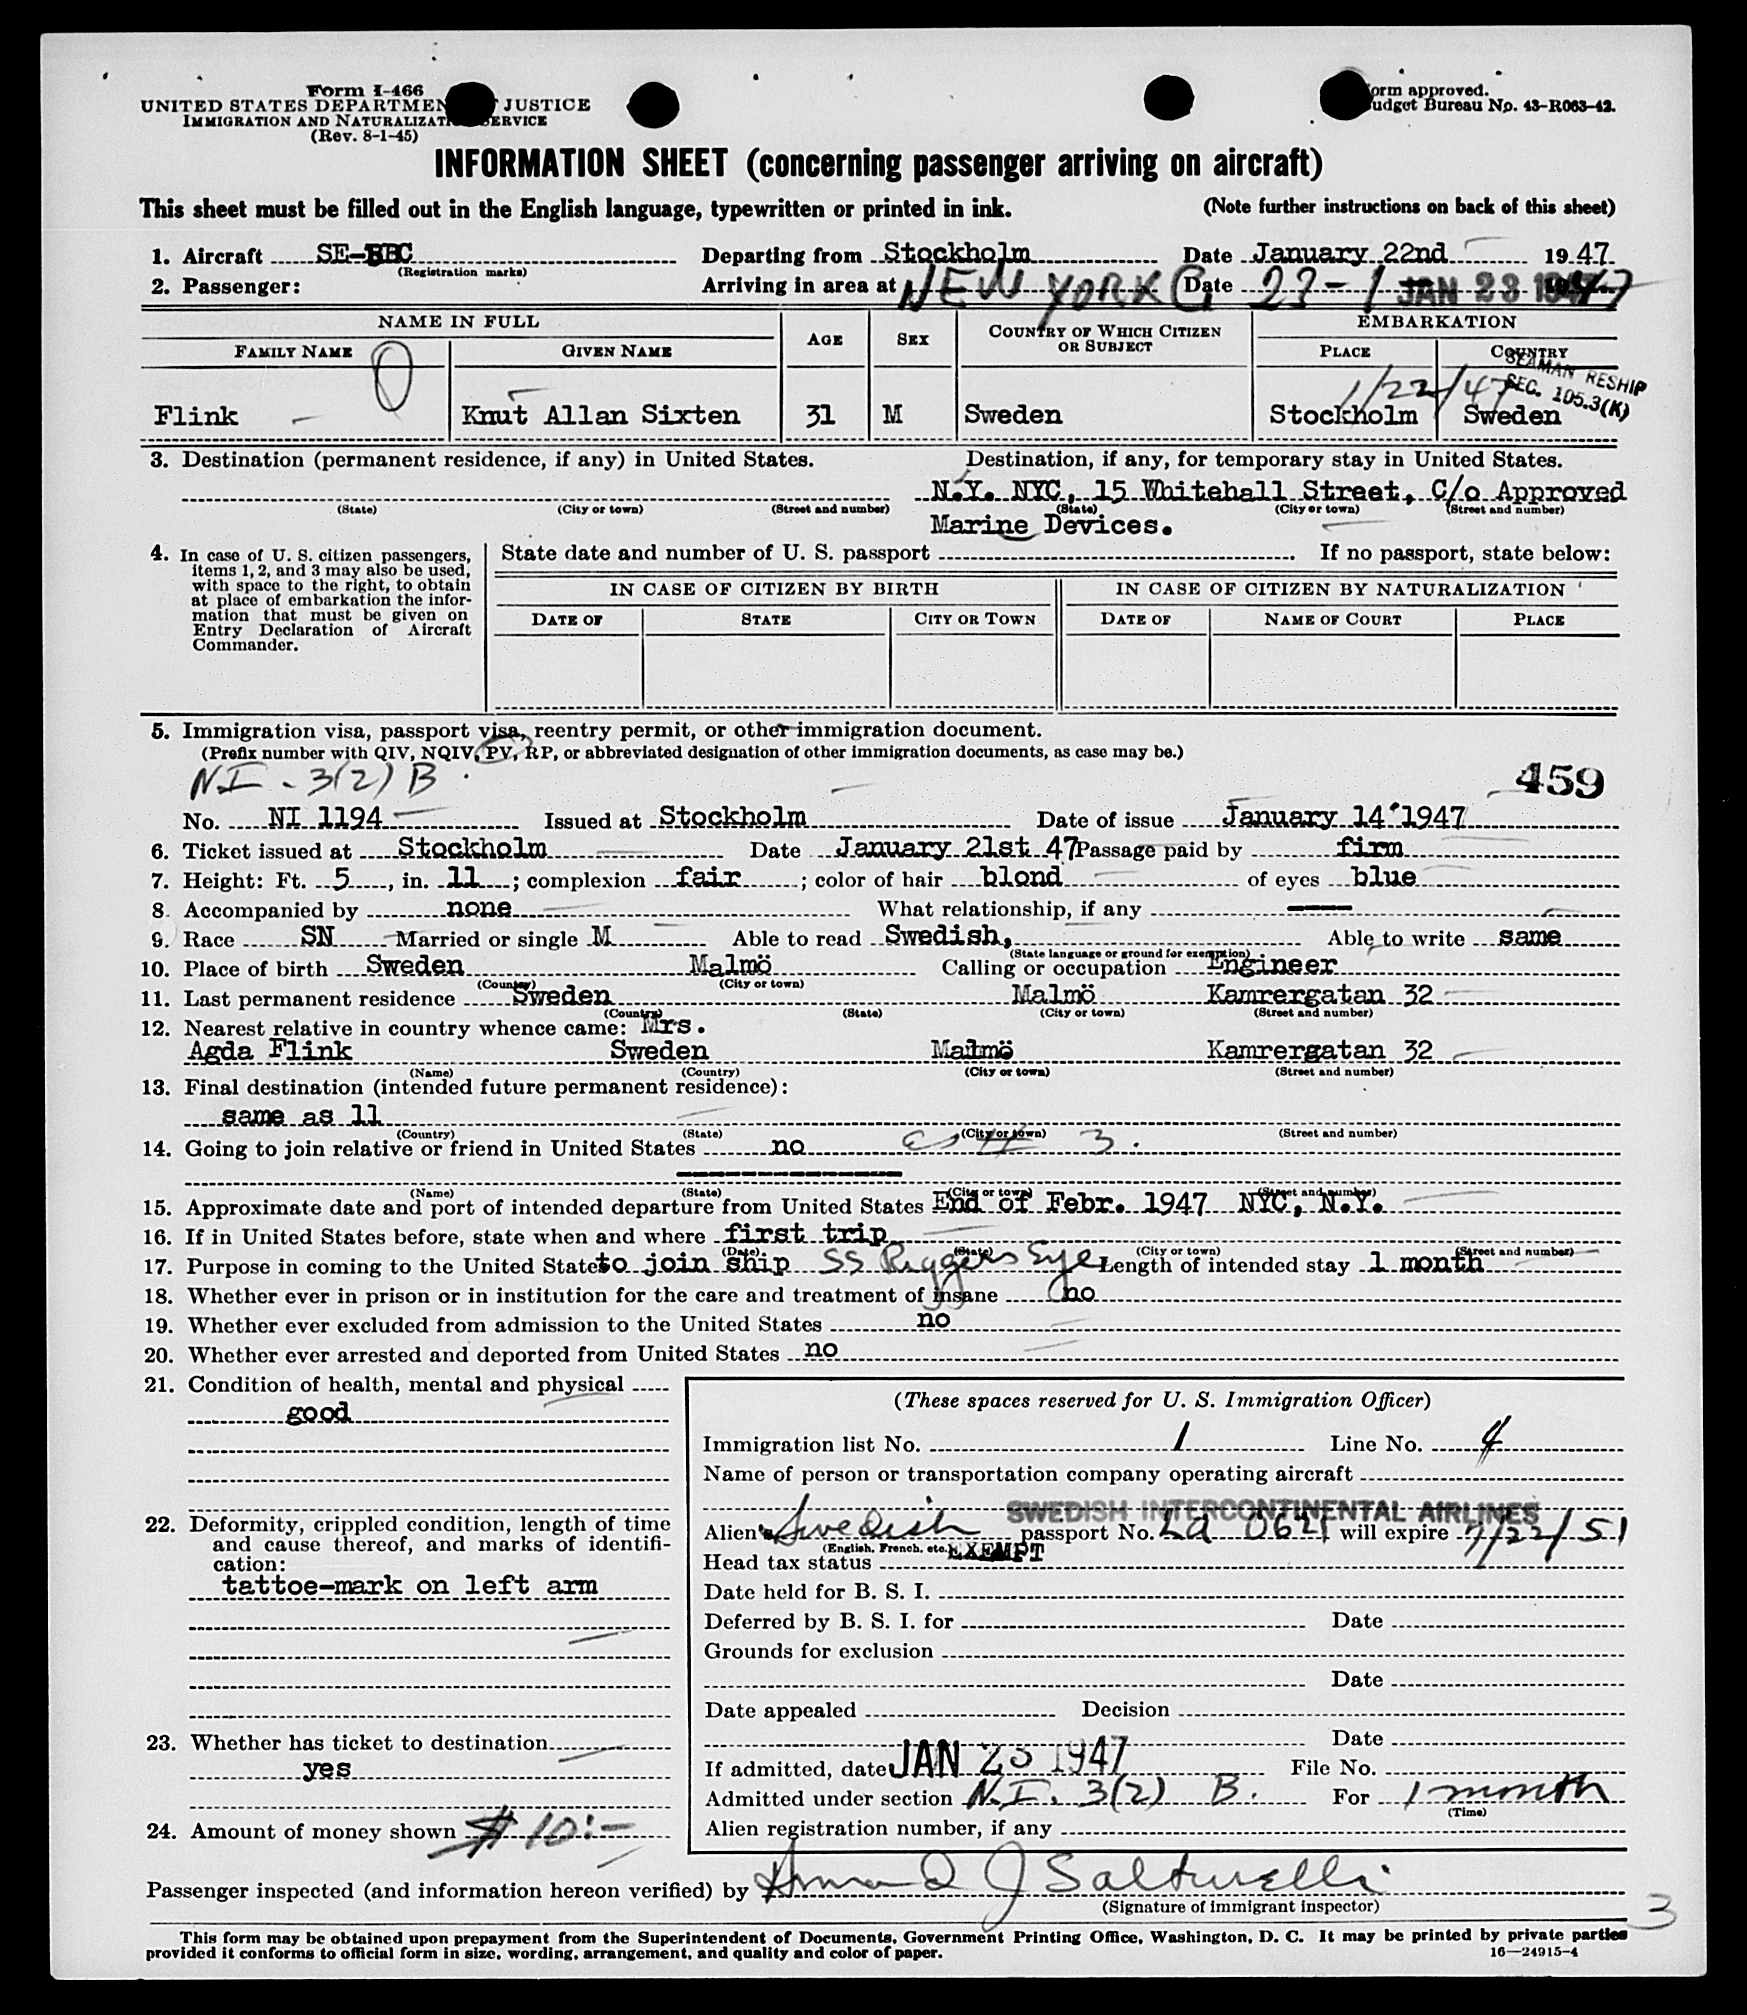 Form I-466
UNITED STATES DEPARTMENT JUSTICE
IMMIGRATION AND NATURALIZATION SERVICE
(Rev. 8-1-45)
Form approved.
Budget Bureau No. 43-R063-42.
INFORMATION SHEET (concerning passenger arriving on aircraft)
This sheet must be filled out in the English language, typewritten or printed in ink. (Note further instructions on back of this sheet)
1. Aircraft SE-BBC Departing from Stockholm Date January 22nd 1947
(Registration marks)
2. Passenger: Arriving in area at NEW YORK Date 23-1 JAN 23 1947
NAME IN FULL AGE SEX COUNTRY OF WHICH CITIZEN OR SUBJECT EMBARKATION
FAMILY NAME GIVEN NAME PLACE COUNTRY
SEAMAN RESHIP
SEC. 105.3(K)
1/22/47
Flink Knut Allan Sixten 31 M Sweden Stockholm Sweden
3. Destination (permanent residence, if any) in United States. Destination, if any, for temporary stay in United States.
N.Y. NYC, 15 Whitehall Street, C/o Approved
(State) (City or town) (Street and number) (State) (City or town) (Street and number)
Marine Devices.
4. In case of U. S. citizen passengers, items 1, 2, and 3 may also be used, with space to the right, to obtain at place of embarkation the information that must be given on Entry Declaration of Aircraft Commander.
State date and number of U. S. passport . If no passport, state below:
IN CASE OF CITIZEN BY BIRTH IN CASE OF CITIZEN BY NATURALIZATION
DATE OF STATE CITY OR TOWN DATE OF NAME OF COURT PLACE
5. Immigration visa, passport visa, reentry permit, or other immigration document.
(Prefix number with QIV, NQIV, PV, RP, or abbreviated designation of other immigration documents, as case may be.)
NI - 3(2) B 459
No. NI 1194 Issued at Stockholm Date of issue January 14 1947
6. Ticket issued at Stockholm Date January 21st 47 Passage paid by firm
7. Height: Ft. 5, in. 11; complexion fair; color of hair blond of eyes blue
8. Accompanied by none What relationship, if any
9. Race SN Married or single M Able to read Swedish, Able to write same
(State language or ground for exemption)
10. Place of birth Sweden Malmö Calling or occupation Engineer
(Country) (City or town)
11. Last permanent residence Sweden Malmö Kamrergatan 32
(Country) (State) (City or town) (Street and number)
12. Nearest relative in country whence came: Mrs.
Agda Flink Sweden Malmö Kamrergatan 32
(Name) (Country) (City or town) (Street and number)
13. Final destination (intended future permanent residence):
same as 11
(Country) (State) (City or town) (Street and number)
14. Going to join relative or friend in United States no
(Name) (State) (City or town) (Street and number)
15. Approximate date and port of intended departure from United States End of Febr. 1947 NYC, N.Y.
16. If in United States before, state when and where first trip
(Date) (State) (City or town) (Street and number)
17. Purpose in coming to the United States to join ship SS Length of intended stay 1 month
18. Whether ever in prison or in institution for the care and treatment of insane no
19. Whether ever excluded from admission to the United States no
20. Whether ever arrested and deported from United States no
21. Condition of health, mental and physical
good
22. Deformity, crippled condition, length of time and cause thereof, and marks of identification:
tattoe-mark on left arm
23. Whether has ticket to destination
yes
24. Amount of money shown $ 10:-
(These spaces reserved for U. S. Immigration Officer)
Immigration list No. 1 Line No. 4
Name of person or transportation company operating aircraft
SWEDISH INTERCONTINENTAL AIRLINES
Alien's Swedish passport No. La 0621 will expire 7/22/51
(English, French, etc.)
Head tax status EXEMPT
Date held for B. S. I.
Deferred by B. S. I. for Date
Grounds for exclusion
Date
Date appealed Decision
Date
If admitted, date JAN 23 1947 File No.
Admitted under section N.I. 3(2) B. For 1 month
(Time)
Alien registration number, if any
Passenger inspected (and information hereon verified) by
(Signature of immigrant inspector)
3
This form may be obtained upon prepayment from the Superintendent of Documents, Government Printing Office, Washington, D. C. It may be printed by private parties
provided it conforms to official form in size, wording, arrangement, and quality and color of paper. 16—24915-4